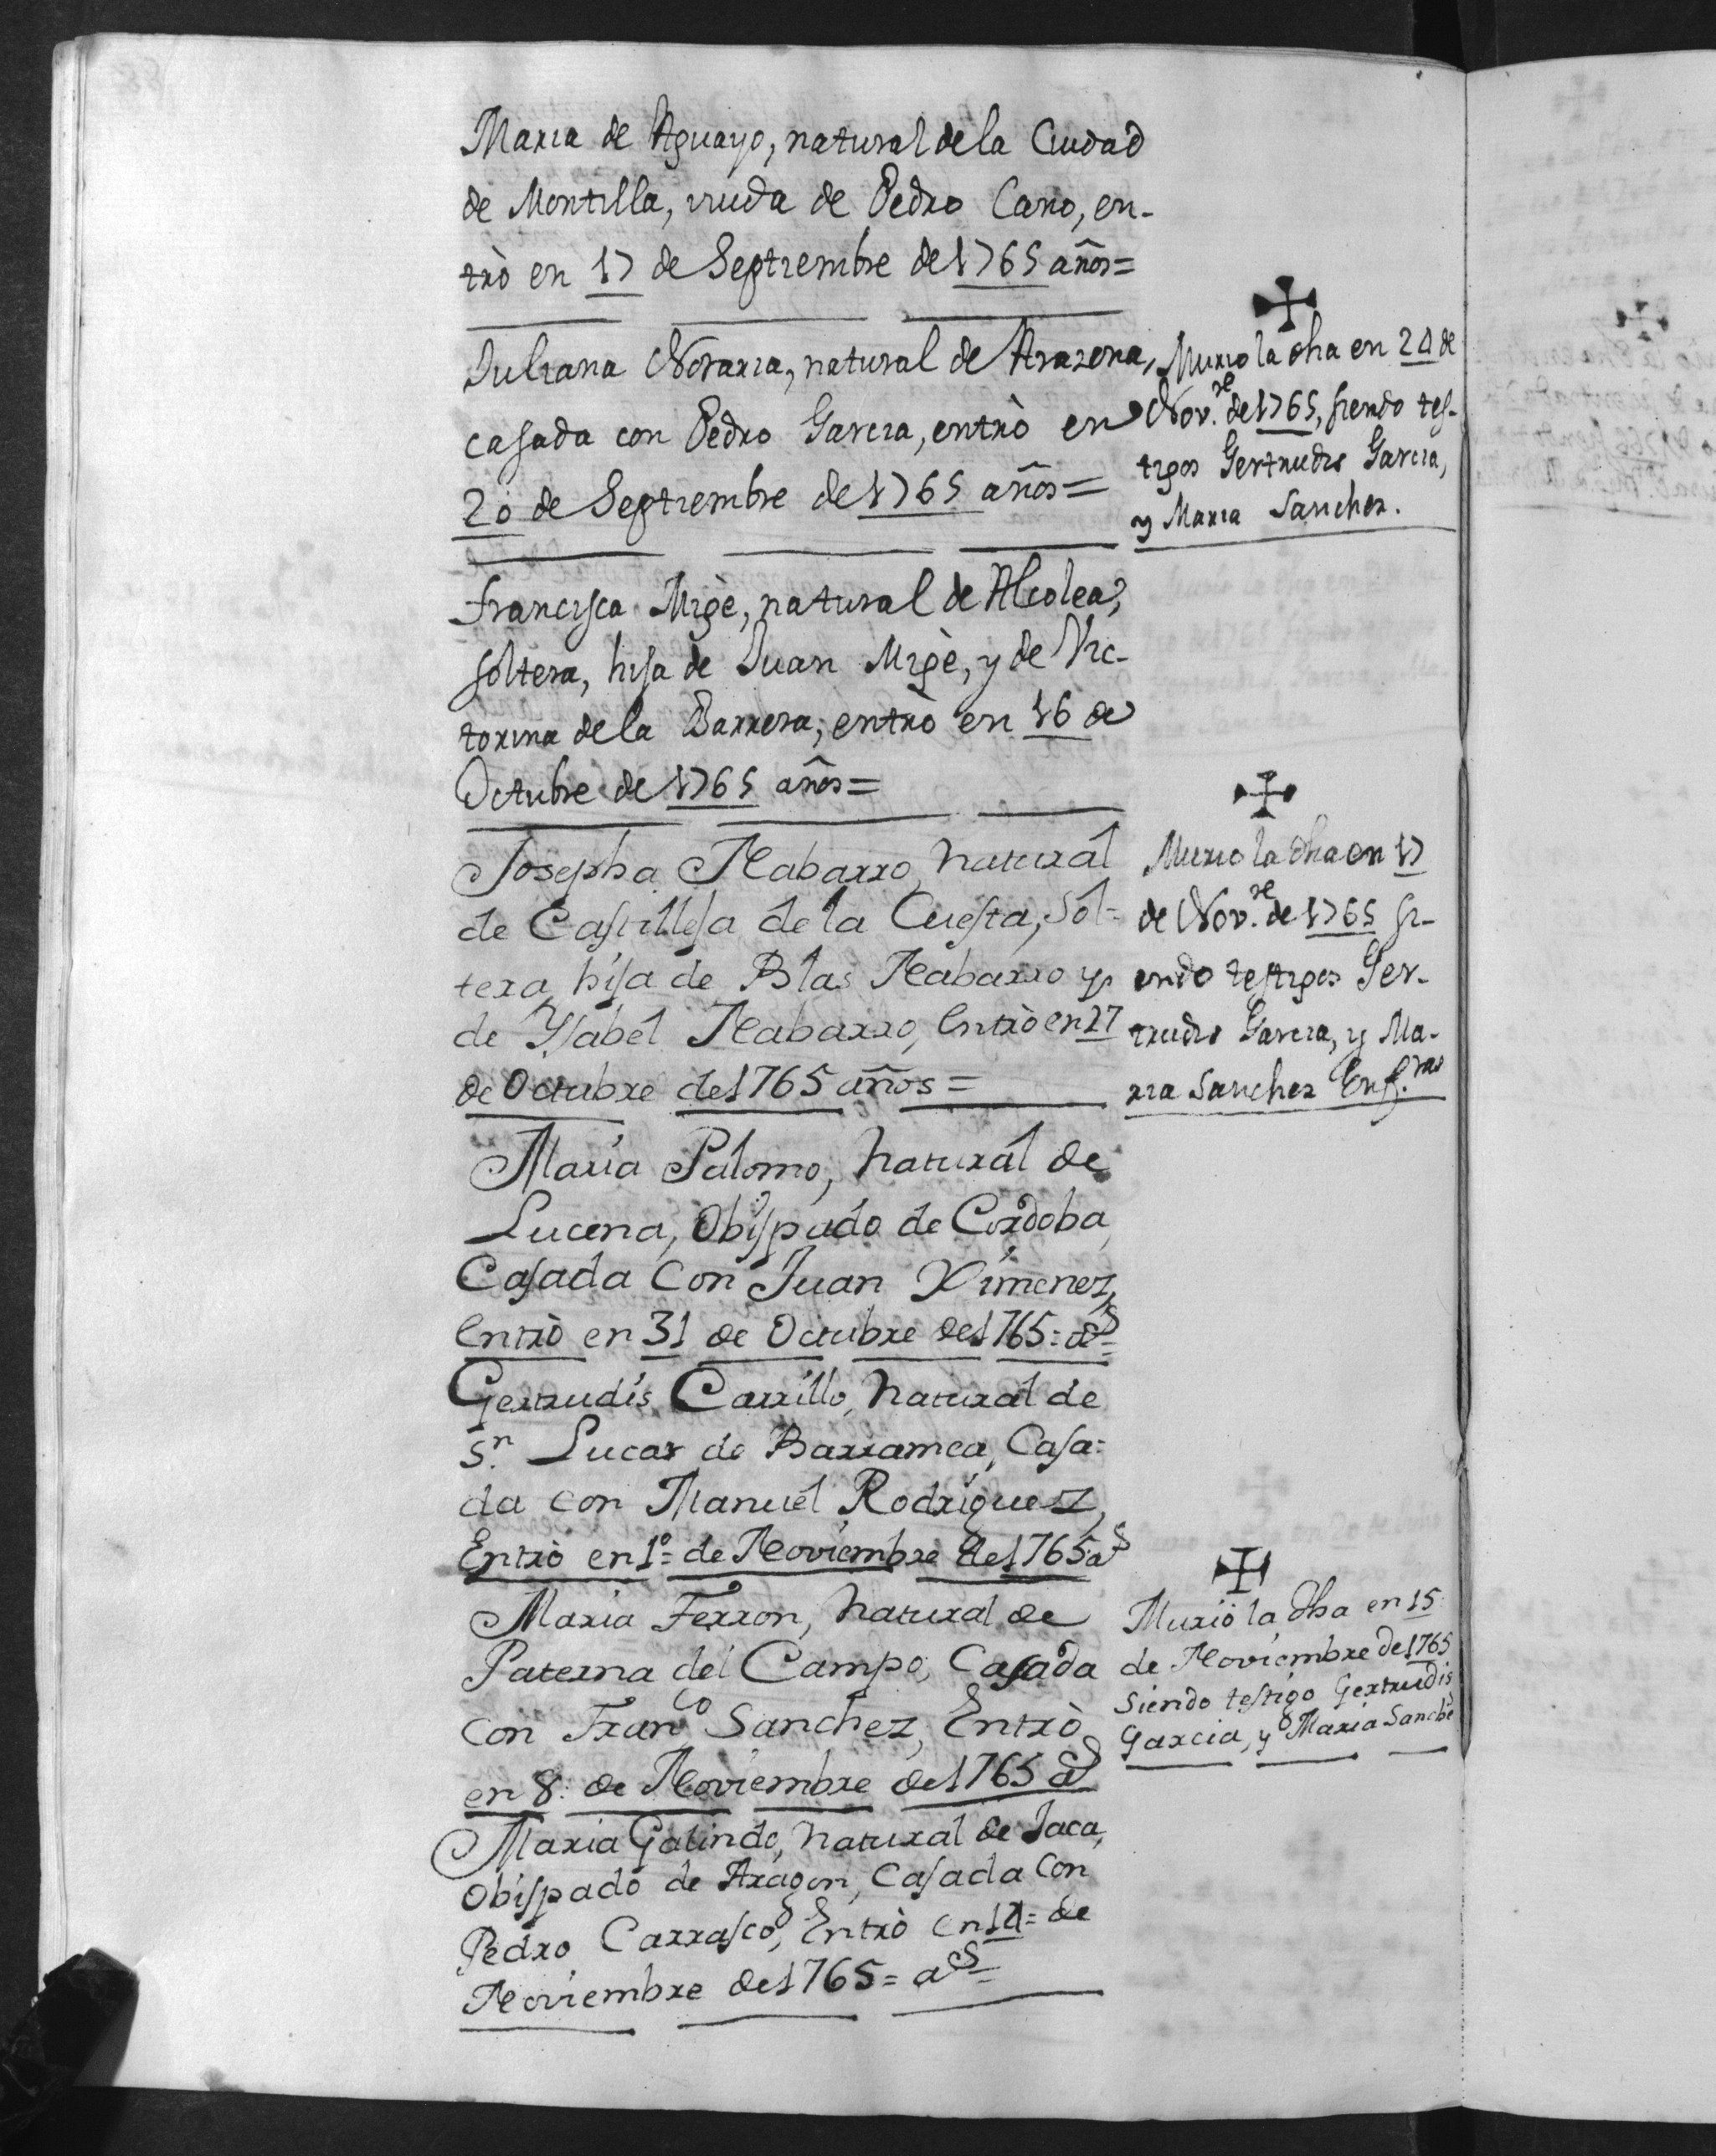 Maria de Aguayo, natural de la Ciudad
de Montilla, viuda de Pedro Cano, en-
trò en 17 de Septiembre de 1765 años=
Juliana Noraria, natural de Arazena,
casada con Pedro Garcia, entrò en
20 de Septiembre de 1765 años=
✠
Murio la dha en 24 de
Nov.re de 1765, siendo tes-
tigos Gertrudis Garcia,
y Maria Sanchez.
Francisca Migè, natural de Alcolea,
soltera, hija de Juan Migè, y de Vic-
torina de la Barrera, entrò en 16 de
Octubre de 1765 años=
Josepha Nabarro, natural
de Castilleja de la Cuesta, Sol=
tera, hija de Blas Nabarro y
de Ysabel Nabarro, Entrò en 27
de Octubre de 1765 años=
✠
Murio la dha en 17
de Nov.re de 1765 si-
endo testigos Ger-
trudis Garcia, y Ma-
ria Sanchez Enf.ras
Maria Palomo, natural de
Lucena, Obispado de Cordoba,
Casada Con Juan Ximenez,
Entrò en 31 de Octubre de 1765=as=
Gertrudis Carrillo, natural de
Sn. Lucar de Barrameda, Casa=
da con Manuel Rodriguez,
Entrò en 1º= de Noviembre de 1765 as
Maria Ferron, natural de
Paterna del Campo, Casada
Con Franco Sanchez, Entrò
en 8: de Noviembre de 1765 as
✠
Muriò la dha en 15:
de Noviembre de 1765
Siendo testigo Gertrudis
Garcia, y Maria Sanchê
Maria Galindo, natural de Jaca,
Obispado de Aragon, Casada Con
Pedro Carrasco, Entrò en 14= de
Noviembre de 1765= as=